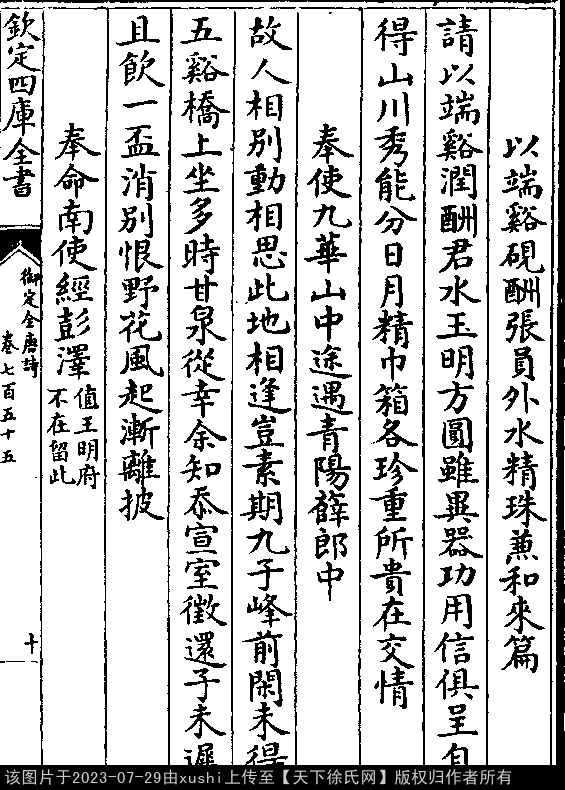 以端谿硯酬張員外水精珠兼和來篇
請以端谿潤酬君水玉明方圓雖異器功用信俱呈自
得山川秀能分日月精巾箱各珍重所貴在交情
奉使九華山中途遇青陽薛郎中
故人相別動相思此地相逢豈素期九子峰前閑未得
五谿橋上坐多時甘泉從幸余知忝宣室徵還子未遲
且飲一盃消別恨野花風起漸離披
奉命南使經彭澤值王明府
不在留此
欽定四庫全書
御定全唐詩
卷七百五十五
十
该图片于2023-07-29由xushi上传至【天下徐氏网】版权归作者所有